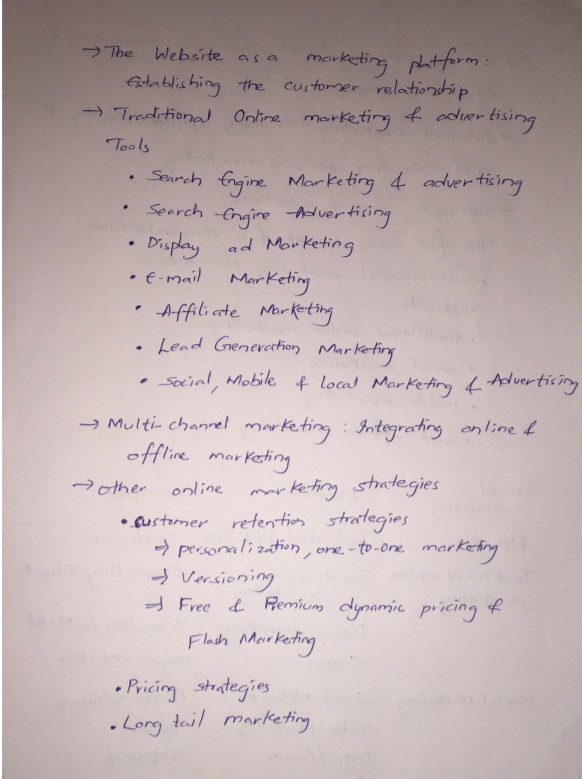 → The Website as a marketing platform:
Establishing the customer relationship
→ Traditional Online marketing & advertising
Tools
• Search Engine Marketing & advertising
• Search Engine Advertising
• Display ad Marketing
• E-mail Marketing
• Affiliate Marketing
• Lead Generation Marketing
• Social, Mobile & local Marketing & Advertising
→ Multi-channel marketing: Integrating online &
offline marketing
→ other online marketing strategies
• customer retention strategies
⇒ personalization, one-to-one marketing
⇒ Versioning
⇒ Free & Premium dynamic pricing &
Flash Marketing
• Pricing strategies
• Long tail marketing